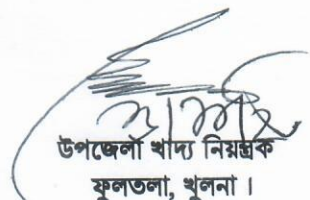 উপজেলা খাদ্য নিয়ন্ত্রক
ফুলতলা, খুলনা।